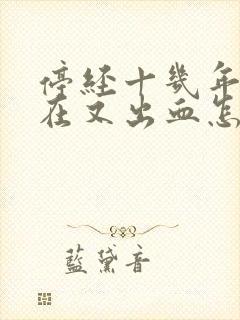 停經十幾年
在又出血怎
藍黛音